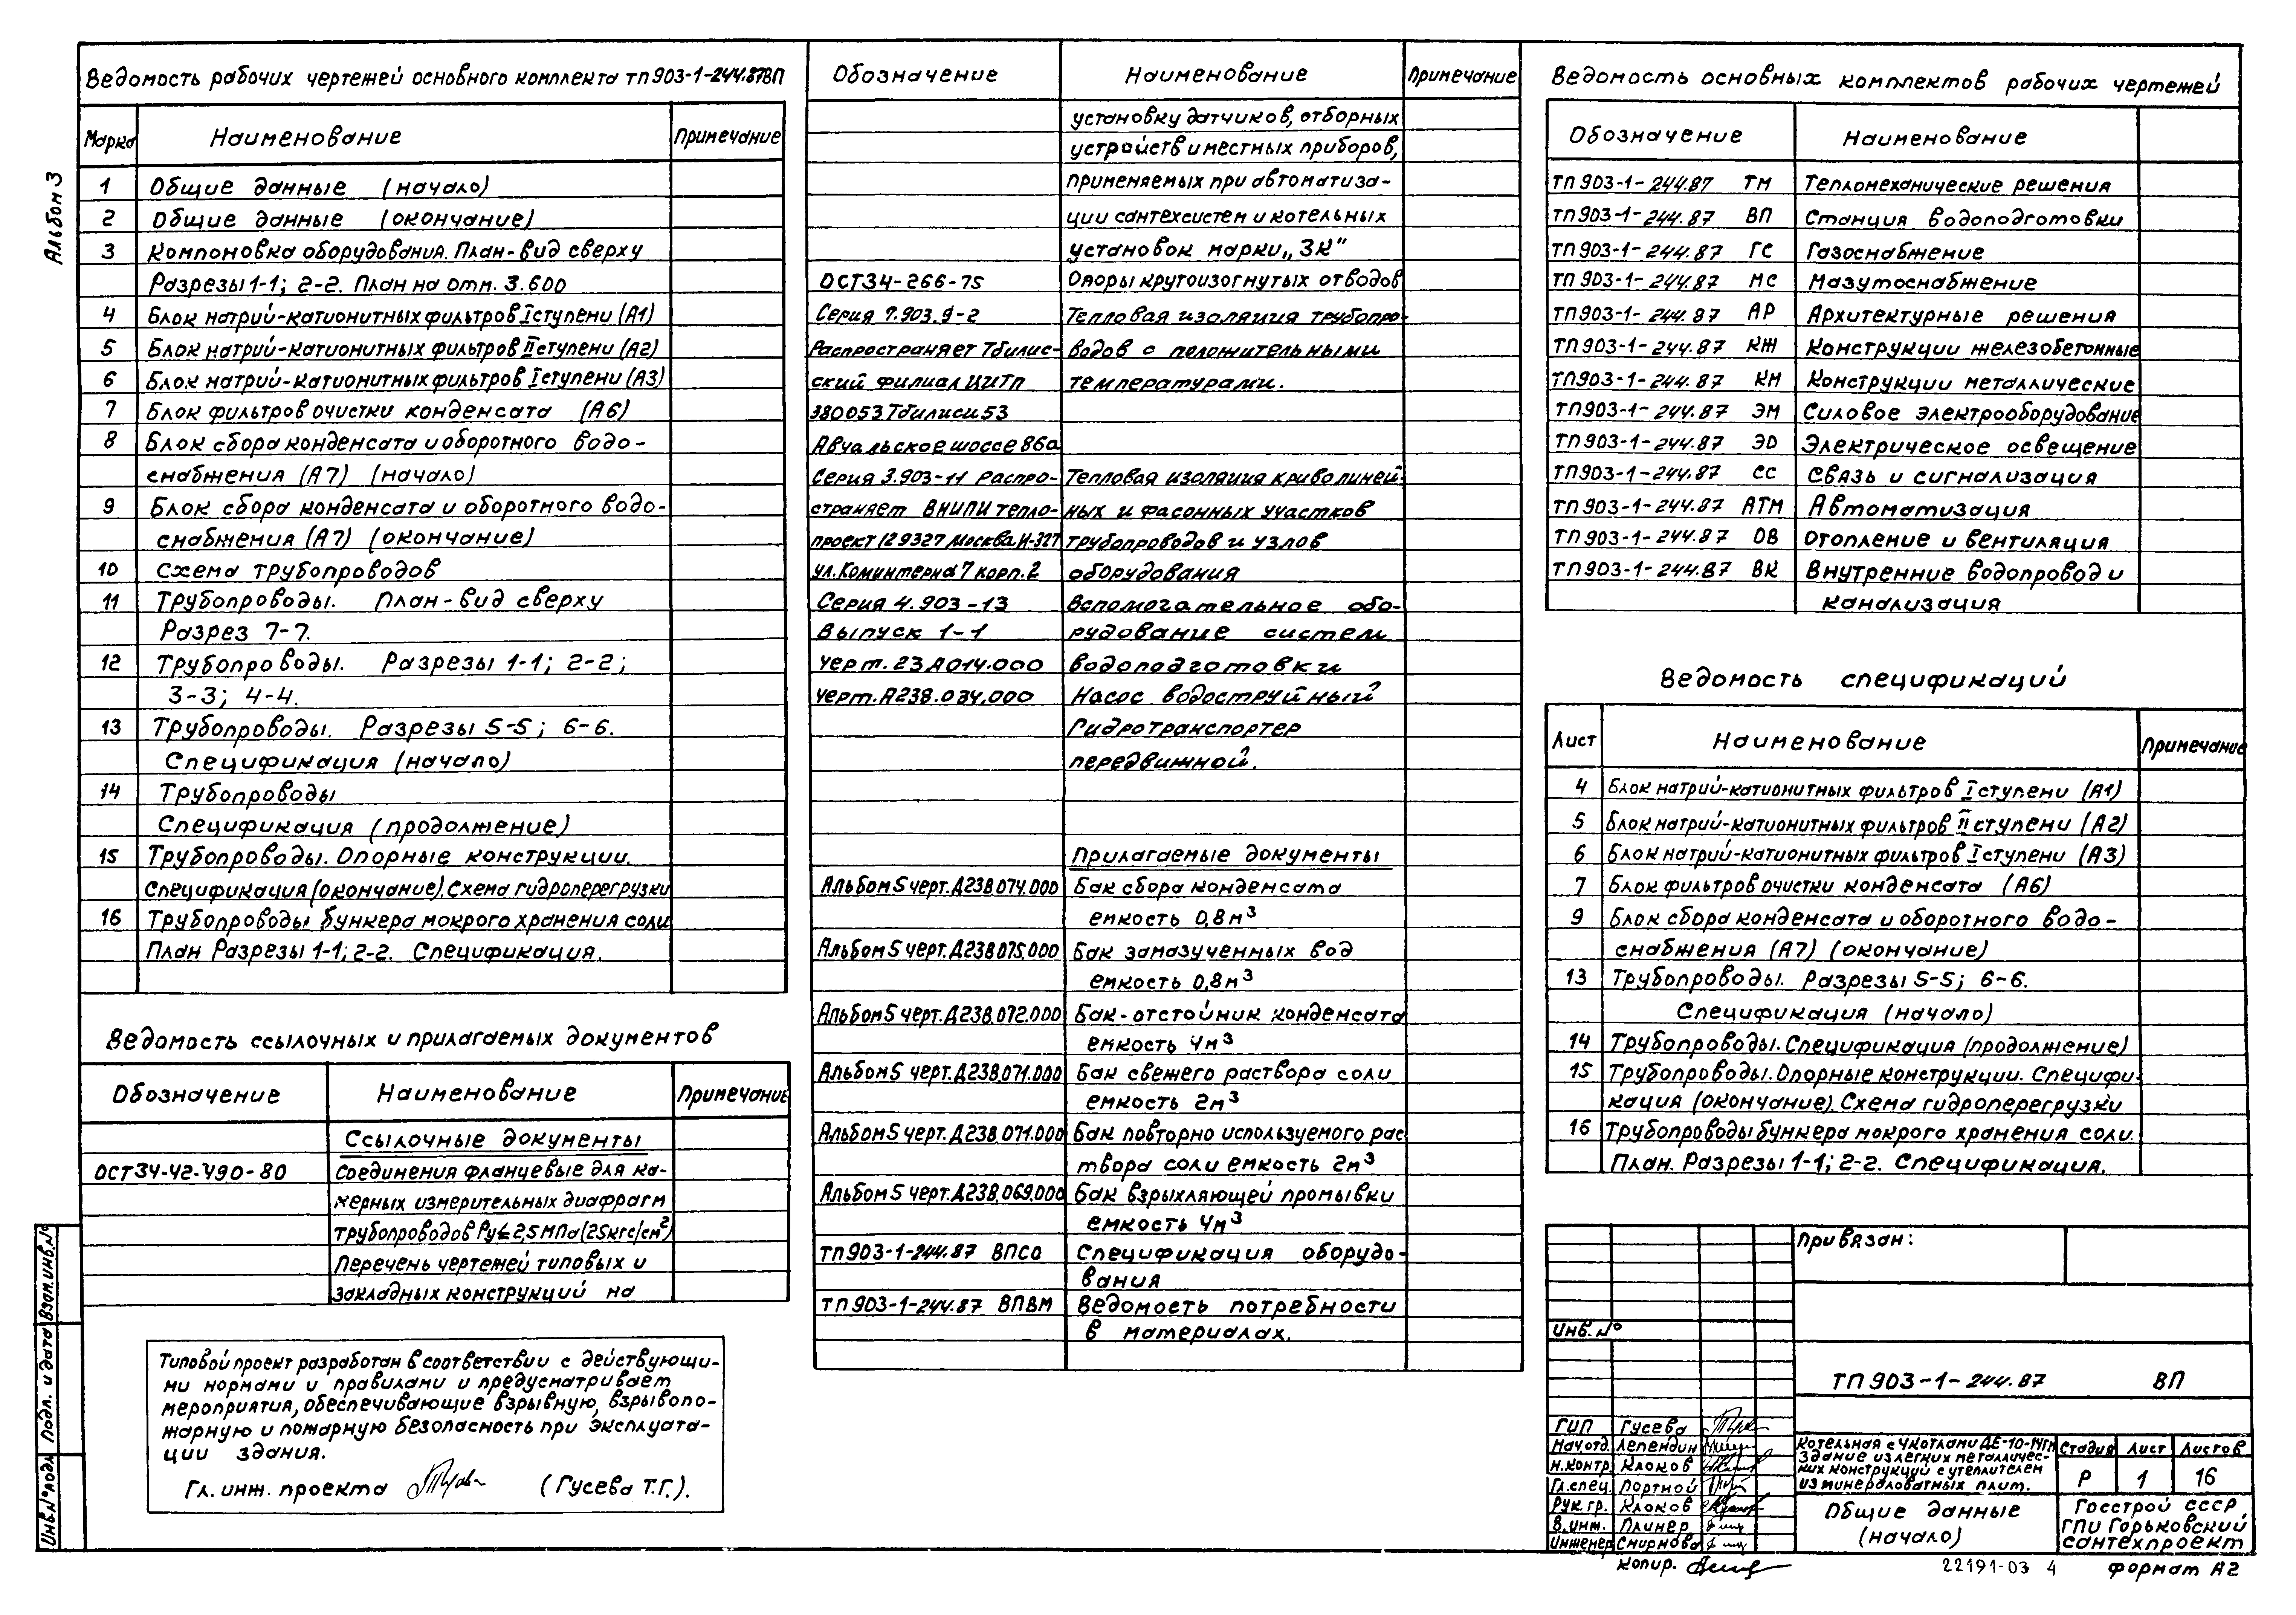 Альбом 3
Ведомость рабочих чертежей основного комплекта ТП903-1-244.87ВП
Марка Наименование Примечание
1 Общие данные (начало)
2 Общие данные (окончание)
3 Компоновка оборудования. План-вид сверху
Разрезы 1-1; 2-2. План на отм. 3.600
4 Блок натрий-катионитных фильтров I ступени (А1)
5 Блок натрий-катионитных фильтров II ступени (А2)
6 Блок натрий-катионитных фильтров I ступени (А3)
7 Блок фильтров очистки конденсата (А6)
8 Блок сбора конденсата и оборотного водо-
снабжения (А7) (начало)
9 Блок сбора конденсата и оборотного водо-
снабжения (А7) (окончание)
10 Схема трубопроводов
11 Трубопроводы. План-вид сверху
Разрез 7-7.
12 Трубопроводы. Разрезы 1-1; 2-2;
3-3; 4-4.
13 Трубопроводы. Разрезы 5-5; 6-6.
Спецификация (начало)
14 Трубопроводы
Спецификация (продолжение)
15 Трубопроводы. Опорные конструкции.
Спецификация (окончание). Схема гидроперегрузки
16 Трубопроводы бункера мокрого хранения соли
План Разрезы 1-1; 2-2. Спецификация.
Ведомость ссылочных и прилагаемых документов
Обозначение Наименование Примечание
Ссылочные документы
ОСТ34-42-490-80 Соединения фланцевые для ка-
мерных измерительных диафрагм
трубопроводов Ру≤2,5МПа(25кгс/см²)
Перечень чертежей типовых и
закладных конструкций на
Типовой проект разработан в соответствии с действующи-
ми нормами и правилами и предусматривает
мероприятия, обеспечивающие взрывную, взрывопо-
жарную и пожарную безопасность при эксплуата-
ции здания.
Гл. инж. проекта (Гусева Т.Г.).
Обозначение Наименование Примечание
установку датчиков, отборных
устройств и местных приборов,
применяемых при автоматиза-
ции сантехсистем и котельных
установок марки „ЗК"
ОСТ34-266-75 Опоры крутоизогнутых отводов
Серия 7.903.9-2 Тепловая изоляция трубопро-
Распространяет Тбилис- водов с положительными
ский филиал ЦИТП температурами.
380053 Тбилиси 53
Авчальское шоссе 86а
Серия 3.903-11 Распро- Тепловая изоляция криволиней-
страняет ВНИПИ тепло- ных и фасонных участков
проект 129327 Москва И-327 трубопроводов и узлов
ул. Коминтерна 7 корп. 2 оборудования
Серия 4.903-13 Вспомогательное обо-
Выпуск 1-1 рудование систем
Черт. 23Д014.000 водоподготовки
Черт. А238.034.000 Насос водоструйный
Гидротранспортер
передвижной.
Прилагаемые документы
Альбом5 черт. Д238.074.000 Бак сбора конденсата
емкость 0,8м³
Альбом5 черт. Д238.075.000 Бак замазученных вод
емкость 0,8м³
Альбом5 черт. Д238.072.000 Бак-отстойник конденсата
емкость 4м³
Альбом5 черт. Д238.071.000 Бак свежего раствора соли
емкость 2м³
Альбом5 черт. Д238.071.000 Бак повторно используемого рас
твора соли емкость 2м³
Альбом5 черт. Д238.069.000 Бак взрыхляющей промывки
емкость 4м³
ТП903-1-244.87 ВПСО Спецификация оборудо-
вания
ТП903-1-244.87 ВПВМ Ведомость потребности
в материалах.
Ведомость основных комплектов рабочих чертежей
Обозначение Наименование
ТП903-1-244.87 ТМ Тепломеханические решения
ТП903-1-244.87 ВП Станция водоподготовки
ТП903-1-244.87 ГС Газоснабжение
ТП903-1-244.87 МС Мазутоснабжение
ТП903-1-244.87 АР Архитектурные решения
ТП903-1-244.87 КЖ Конструкции железобетонные
ТП903-1-244.87 КМ Конструкции металлические
ТП903-1-244.87 ЭМ Силовое электрооборудование
ТП903-1-244.87 ЭО Электрическое освещение
ТП903-1-244.87 СС Связь и сигнализация
ТП903-1-244.87 АТМ Автоматизация
ТП903-1-244.87 ОВ Отопление и вентиляция
ТП903-1-244.87 ВК Внутренние водопровод и
канализация
Ведомость спецификаций
Лист Наименование Примечание
4 Блок натрий-катионитных фильтров I ступени (А1)
5 Блок натрий-катионитных фильтров II ступени (А2)
6 Блок натрий-катионитных фильтров I ступени (А3)
7 Блок фильтров очистки конденсата (А6)
9 Блок сбора конденсата и оборотного водо-
снабжения (А7) (окончание)
13 Трубопроводы. Разрезы 5-5; 6-6.
Спецификация (начало)
14 Трубопроводы. Спецификация (продолжение)
15 Трубопроводы. Опорные конструкции. Специфи-
кация (окончание). Схема гидроперегрузки
16 Трубопроводы бункера мокрого хранения соли.
План. Разрезы 1-1; 2-2. Спецификация.
Привязан:
Инв. №
ТП903-1-244.87 ВП
ГИП Гусева
Нач.отд. Лепендин
Н.контр. Клоков
Гл.спец. Портной
Рук.гр. Клоков
В.инж. Плинер
Инженер Смирнова
Котельная с 4 котлами ДЕ-10-14ГМ
Здание из легких металличес-
ких конструкций с утеплителем
из минераловатных плит.
Стадия Лист Листов
Р 1 16
Общие данные
(начало)
Госстрой СССР
ГПИ Горьковский
сантехпроект
Копир.
22191-03 4
Формат А2
Инв.№ подл. Подп. и дата Взам.инв.№